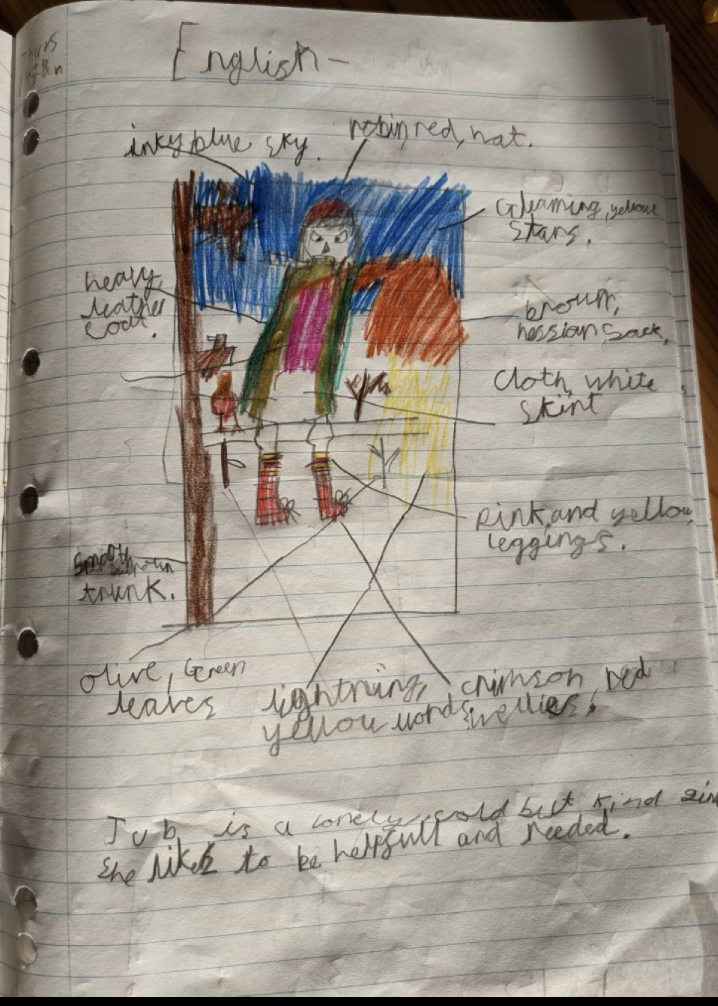 Thurs
English -
inky, blue sky.
robin, red, hat.
Gleaming, yellow
Stars.
heavy,
leather
coat.
brown,
hessian, sack.
Cloth, white
skint
Pink, and yellow
leggings.
Smooth brown
trunk.
olive, Green
leaves
lightning,
yellow words.
crimson red
wellies.
Jub is a lonely, cold but kind
she likes to be helpfull and needed.